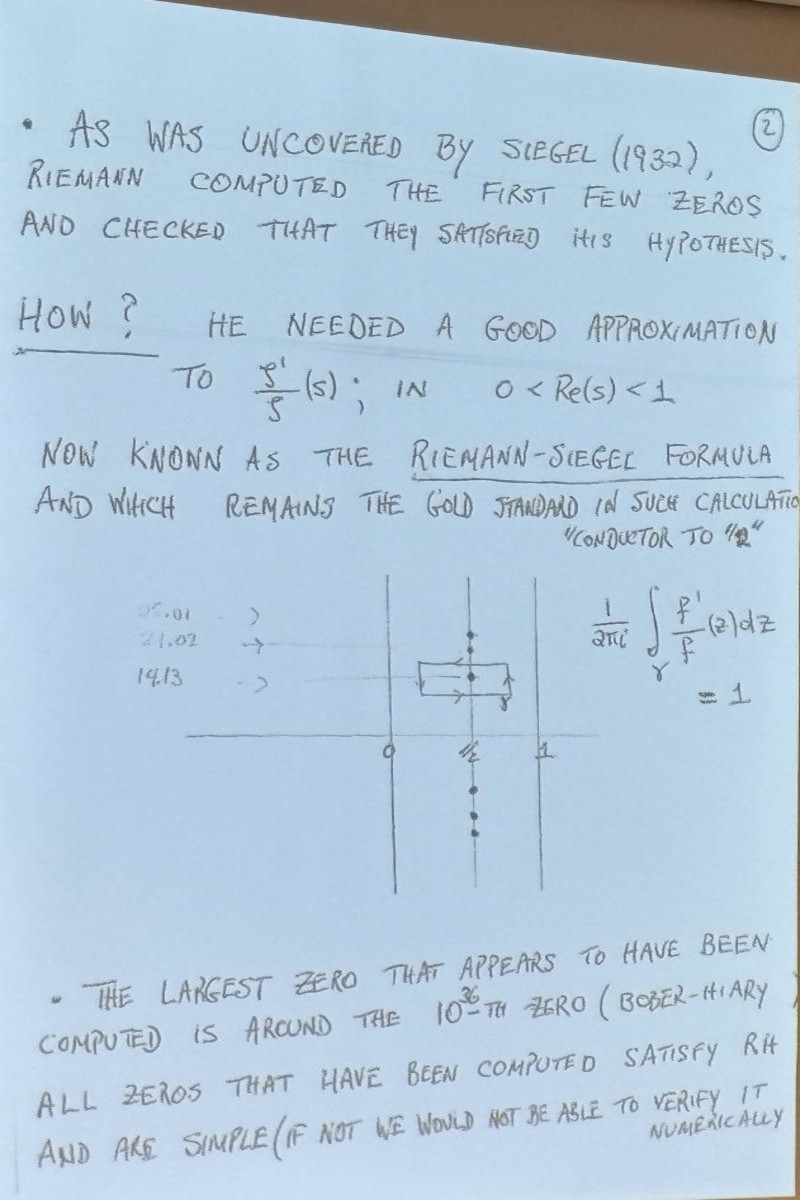 2
• AS WAS UNCOVERED BY SIEGEL (1932),
RIEMANN COMPUTED THE FIRST FEW ZEROS
AND CHECKED THAT THEY SATISFIED HIS HYPOTHESIS.
HOW? HE NEEDED A GOOD APPROXIMATION
TO ζ'/ζ (s); IN 0 < Re(s) < 1
NOW KNONN AS THE RIEMANN-SIEGEL FORMULA
AND WHICH REMAINS THE GOLD STANDARD IN SUCH CALCULATIO
"CONDUCTOR TO 1/2"
1/2πi ∫γ f'/f (z)dz
= 1
21.02 →
14.13
γ
0 1/2 1
• THE LARGEST ZERO THAT APPEARS TO HAVE BEEN
COMPUTED IS AROUND THE 10^36-TH ZERO (BOBER-HIARY)
ALL ZEROS THAT HAVE BEEN COMPUTED SATISFY RH
AND ARE SIMPLE (IF NOT WE WOULD NOT BE ABLE TO VERIFY IT
NUMERICALLY